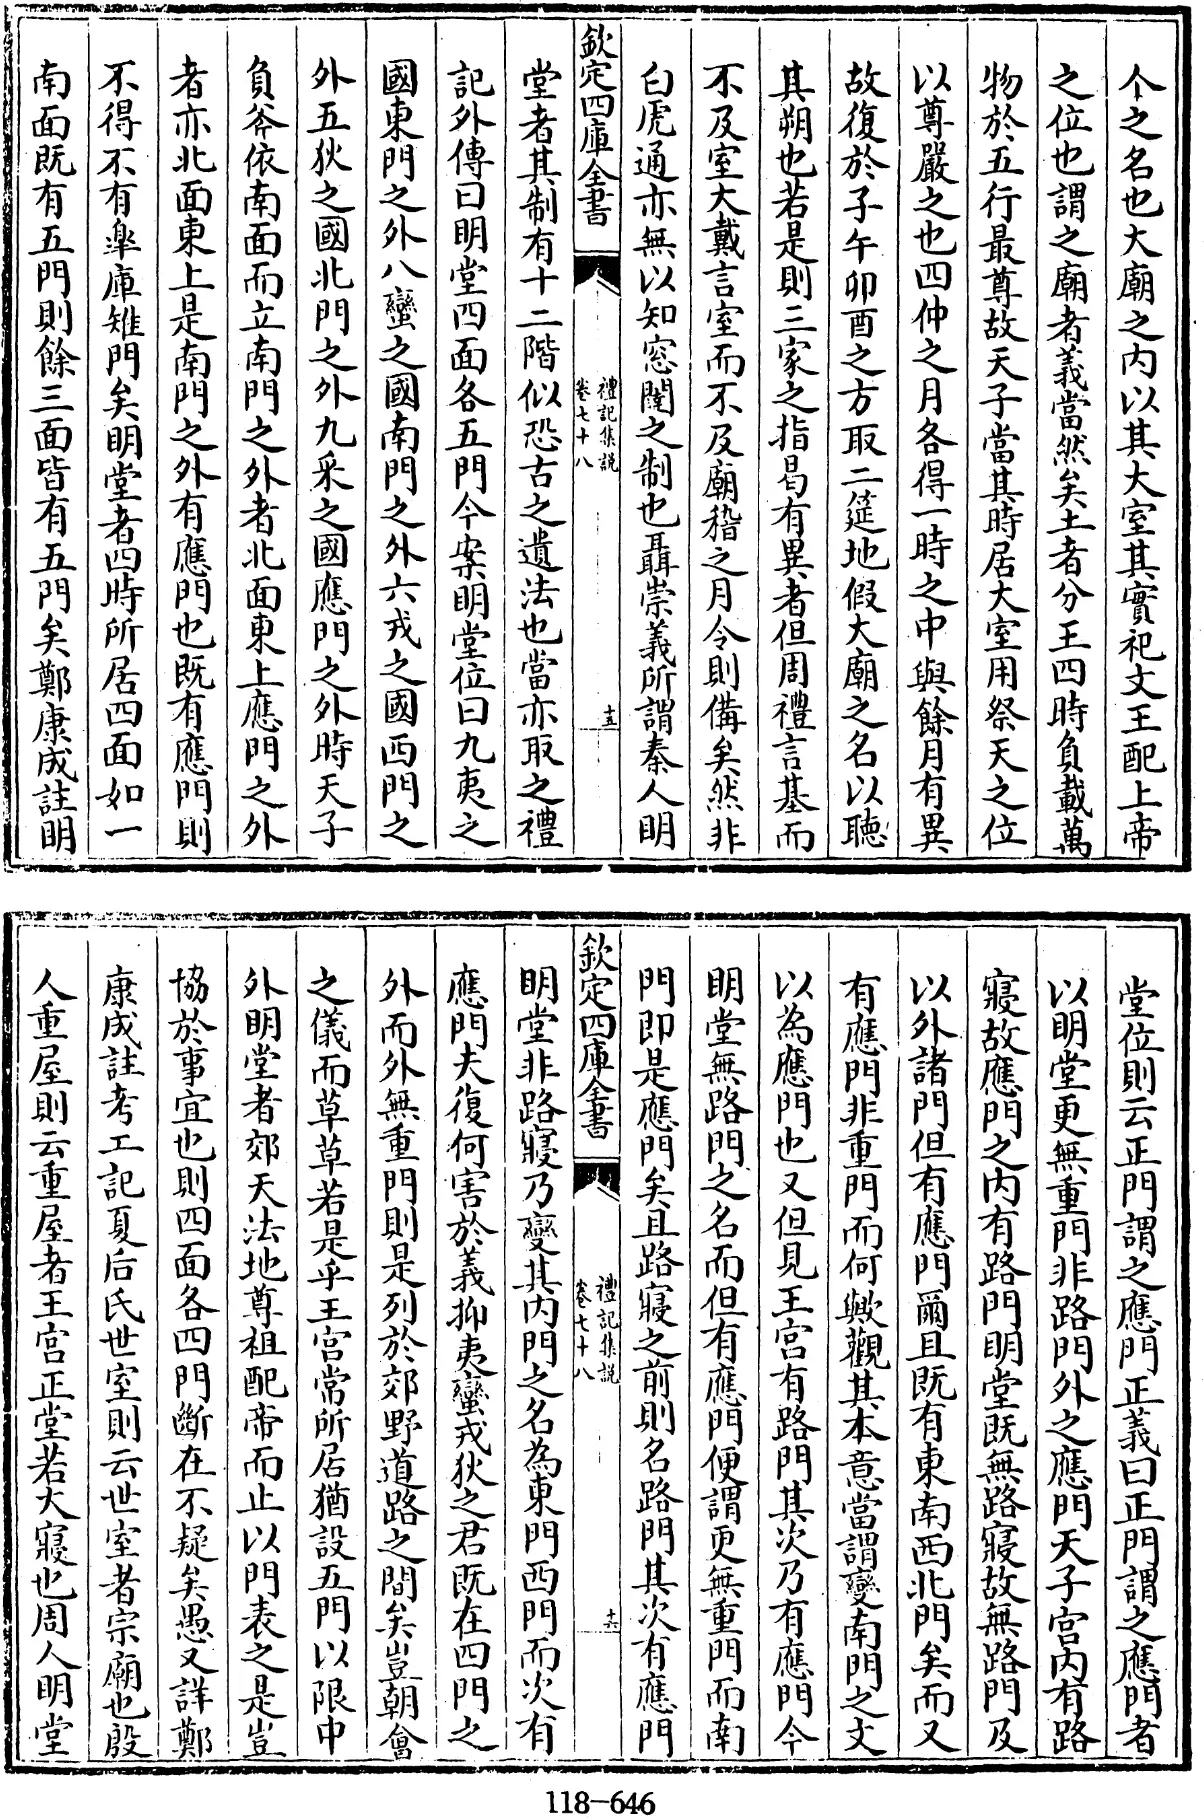 个之名也大廟之内以其大室其實祀文王配上帝
之位也謂之廟者義當然矣土者分王四時負載萬
物於五行最尊故天子當其時居大室用祭天之位
以尊嚴之也四仲之月各得一時之中與餘月有異
故復於子午卯酉之方取二筵地假大廟之名以聽
其朔也若是則三家之指曷有異者但周禮言基而
不及室大戴言室而不及廟稽之月令則備矣然非
白虎通亦無以知窓闥之制也聶崇義所謂秦人明
欽定四庫全書
禮記集説
卷七十八
十五
堂者其制有十二階似恐古之遺法也當亦取之禮
記外傳曰明堂四面各五門今案明堂位曰九夷之
國東門之外八蠻之國南門之外六戎之國西門之
外五狄之國北門之外九采之國應門之外時天子
負斧依南面而立南門之外者北面東上應門之外
者亦北面東上是南門之外有應門也既有應門則
不得不有皐庫雉門矣明堂者四時所居四面如一
南面既有五門則餘三面皆有五門矣鄭康成註明
堂位則云正門謂之應門正義曰正門謂之應門者
以明堂更無重門非路門外之應門天子宮内有路
寢故應門之内有路門明堂既無路寢故無路門及
以外諸門但有應門爾且既有東南西北門矣而又
有應門非重門而何歟觀其本意當謂變南門之文
以為應門也又但見王宮有路門其次乃有應門今
明堂無路門之名而但有應門便謂更無重門而南
門即是應門矣且路寢之前則名路門其次有應門
欽定四庫全書
禮記集説
卷七十八
十六
明堂非路寢乃變其内門之名為東門西門而次有
應門夫復何害於義抑夷蠻戎狄之君既在四門之
外而外無重門則是列於郊野道路之間矣豈朝會
之儀而草草若是乎王宮常所居猶設五門以限中
外明堂者郊天法地尊祖配帝而止以門表之是豈
協於事宜也則四面各四門斷在不疑矣愚又詳鄭
康成註考工記夏后氏世室則云世室者宗廟也殷
人重屋則云重屋者王宮正堂若大寢也周人明堂
118-646